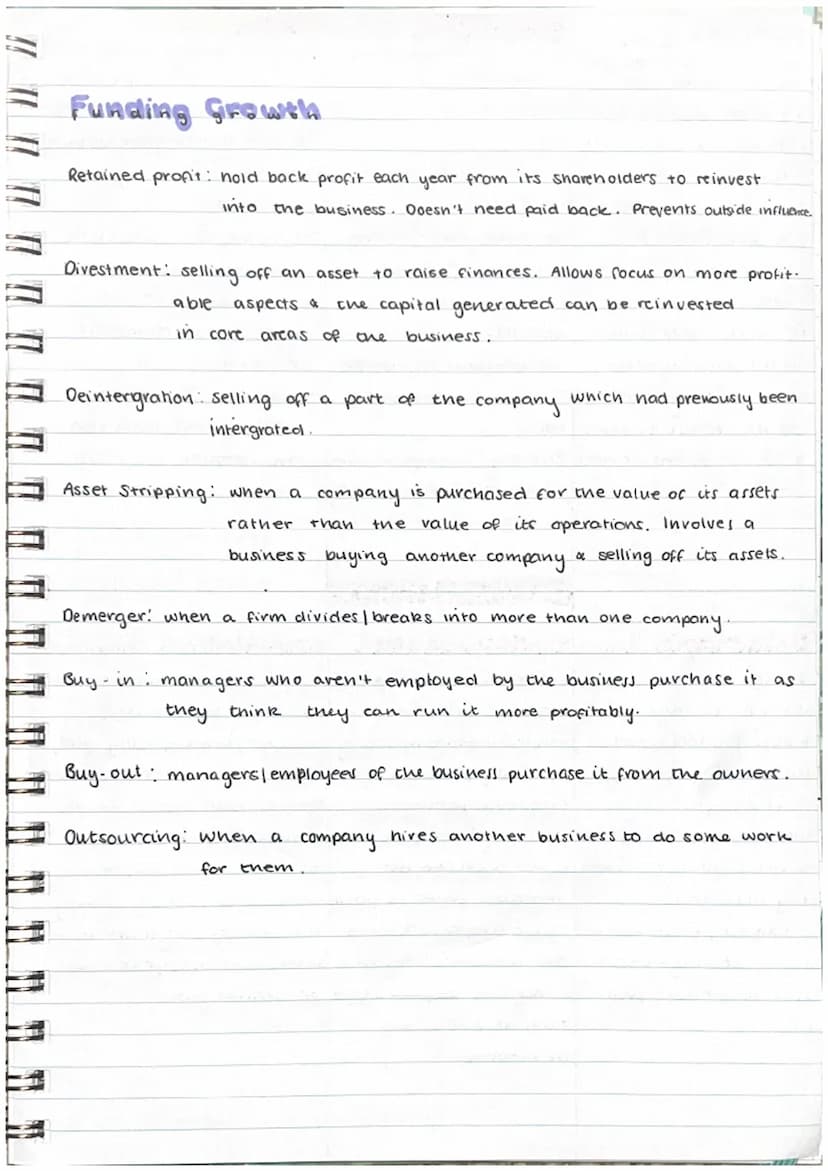 Funding Growth
Retained profit: hold back profit each year from its shareholders to reinvest
into the business. Doesn't need paid back. Prevents outside influence.
Divestment: selling off an asset to raise finances. Allows focus on more profit-
able aspects & the capital generated can be reinvested
in core areas of the business.
Deintergration: selling off a part of the company which had previously been
intergrated.
Asset Stripping: when a company is purchased for the value of its assets
rather than the value of its operations. Involves a
business buying another company & selling off its assets.
Demerger: when a firm divides/breaks into more than one company.
Buy-in: managers who aren't employed by the business purchase it as
they think they can run it more profitably.
Buy-out: managers/employees of the business purchase it from the owners.
Outsourcing: when a company hires another business to do some work
for them.